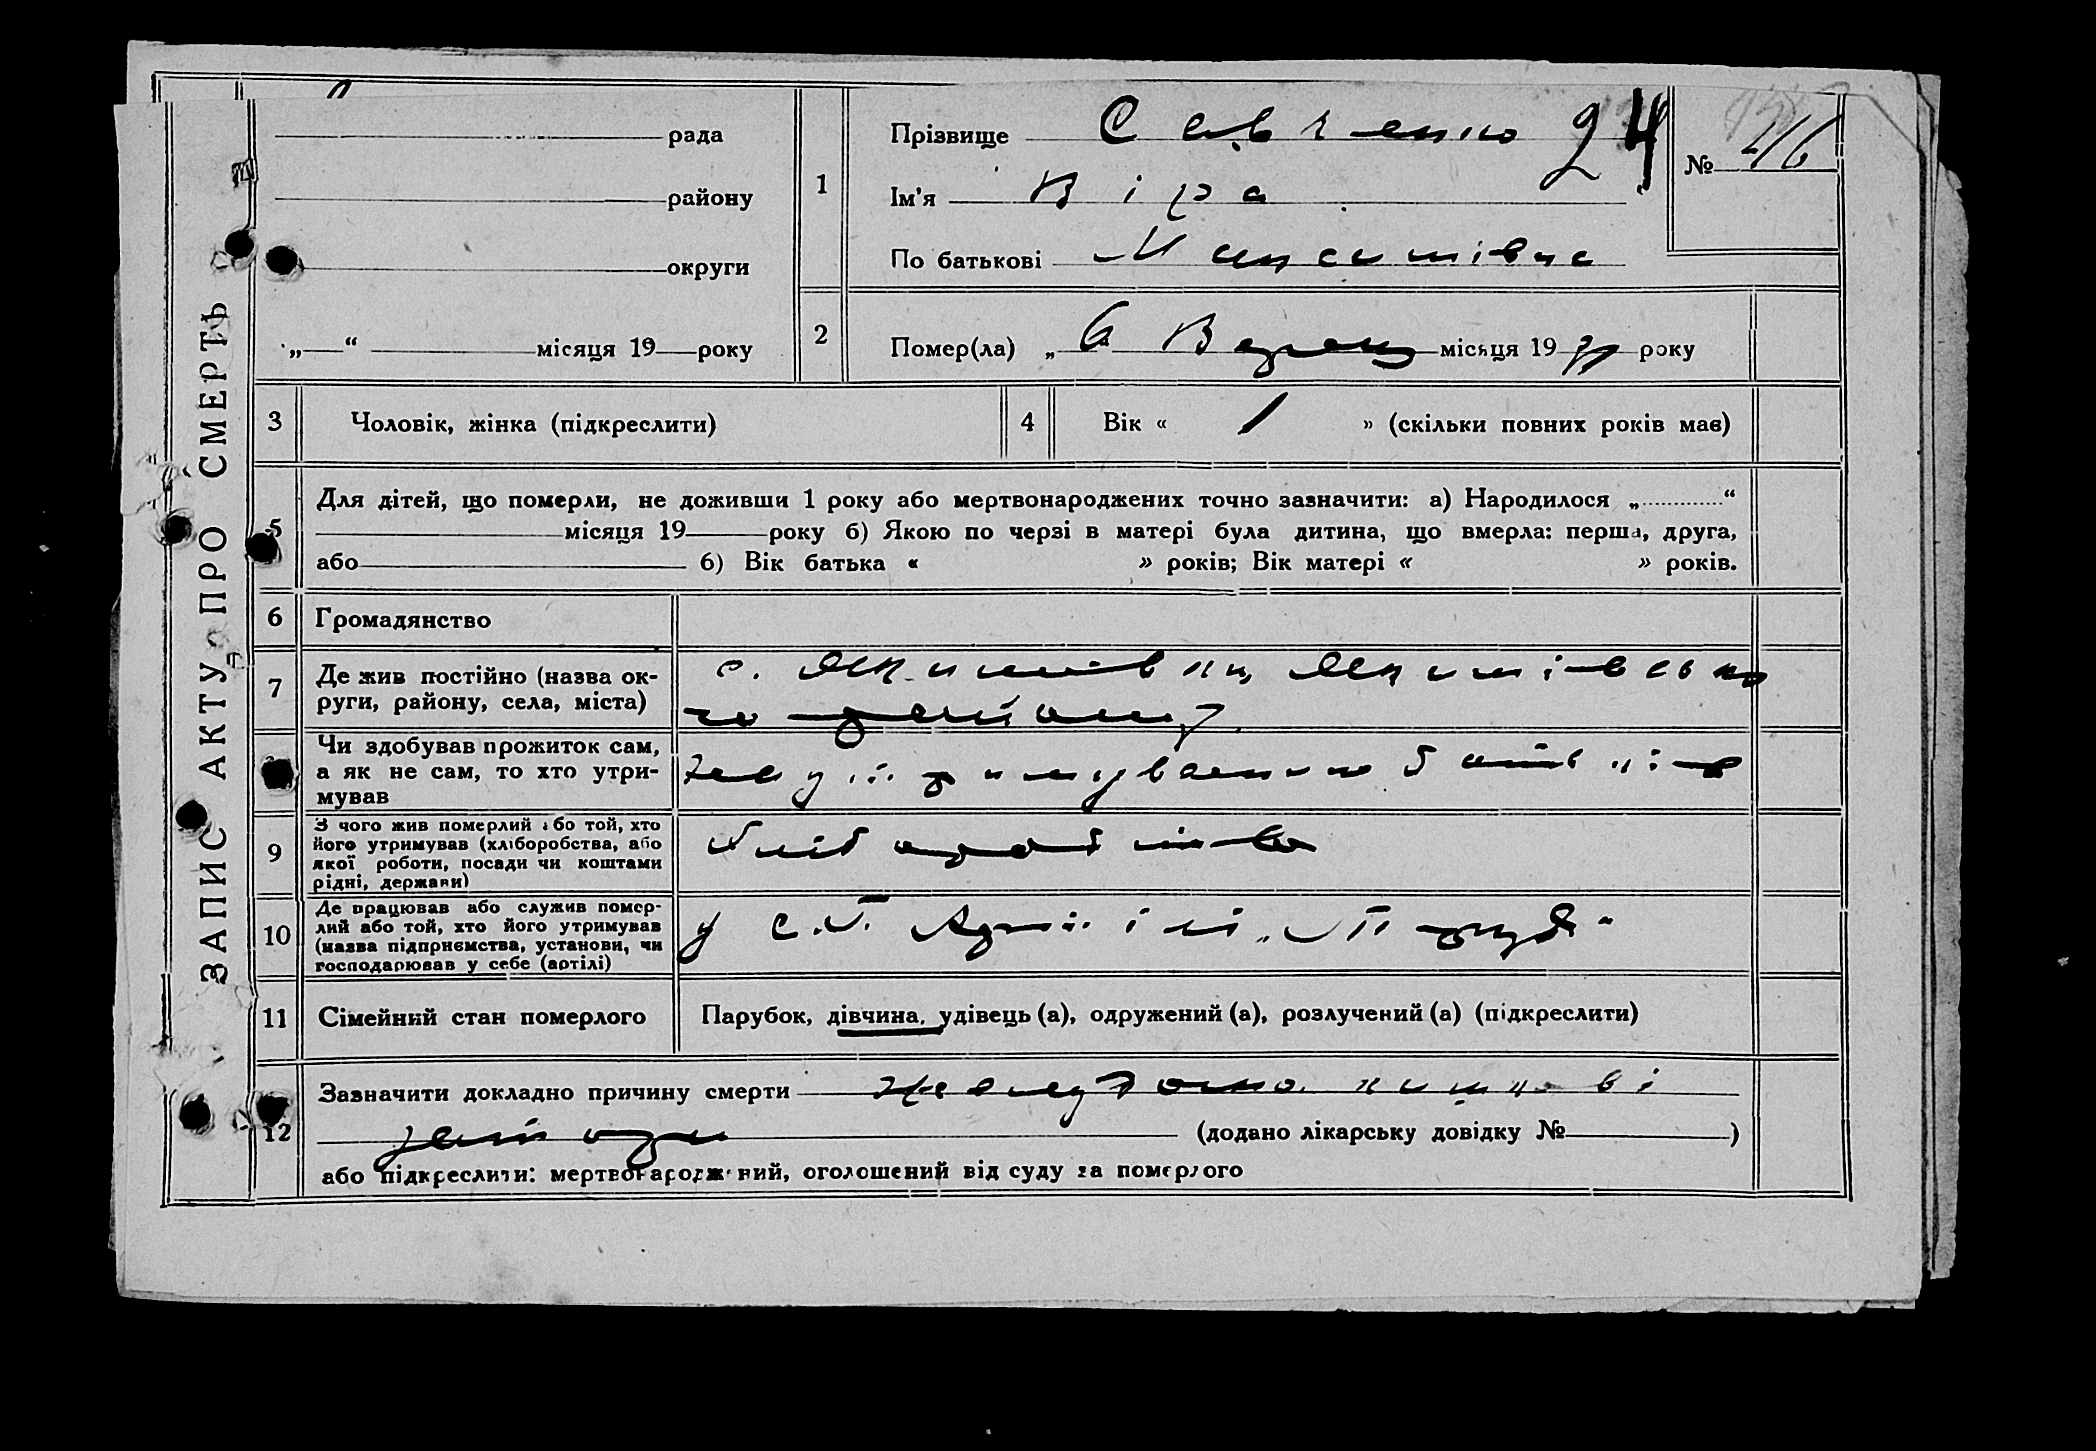 ЗАПИС АКТУ ПРО СМЕРТЬ
рада
району
округи
„ “ місяця 19 року
1
Прізвище Савченко 24
№ 216
Ім'я Віра
По батькові Максимівна
2
Помер(ла) „ 6 місяця 19 року
3 Чоловік, жінка (підкреслити)
4 Вік « 1 » (скільки повних років має)
5
Для дітей, що померли, не доживши 1 року або мертвонароджених точно зазначити: а) Народилося „ “
місяця 19 року б) Якою по черзі в матері була дитина, що вмерла: перша, друга,
або б) Вік батька « » років; Вік матері « » років.
6 Громадянство
7
Де жив постійно (назва ок-
руги, району, села, міста)
с. Якимівки, Якимівсько
го району
Чи здобував прожиток сам,
а як не сам, то хто утри-
мував
на утримуванню батьків
9
З чого жив померлий або той, хто
його утримував (хліборобства, або
якої роботи, посади чи коштами
рідні, держави)
Хліборобство
10
Де працював або служив помер-
лий або той, хто його утримував
(назва підприємства, установи, чи
господарював у себе (артілі)
у С.Г. Артілі „
11 Сімейний стан померлого
Парубок, дівчина, удівець (а), одружений (а), розлучений (а) (підкреслити)
12
Зазначити докладно причину смерти Желудочно кишкові
(додано лікарську довідку № )
або підкреслити: мертвонароджений, оголошений від суду за померлого